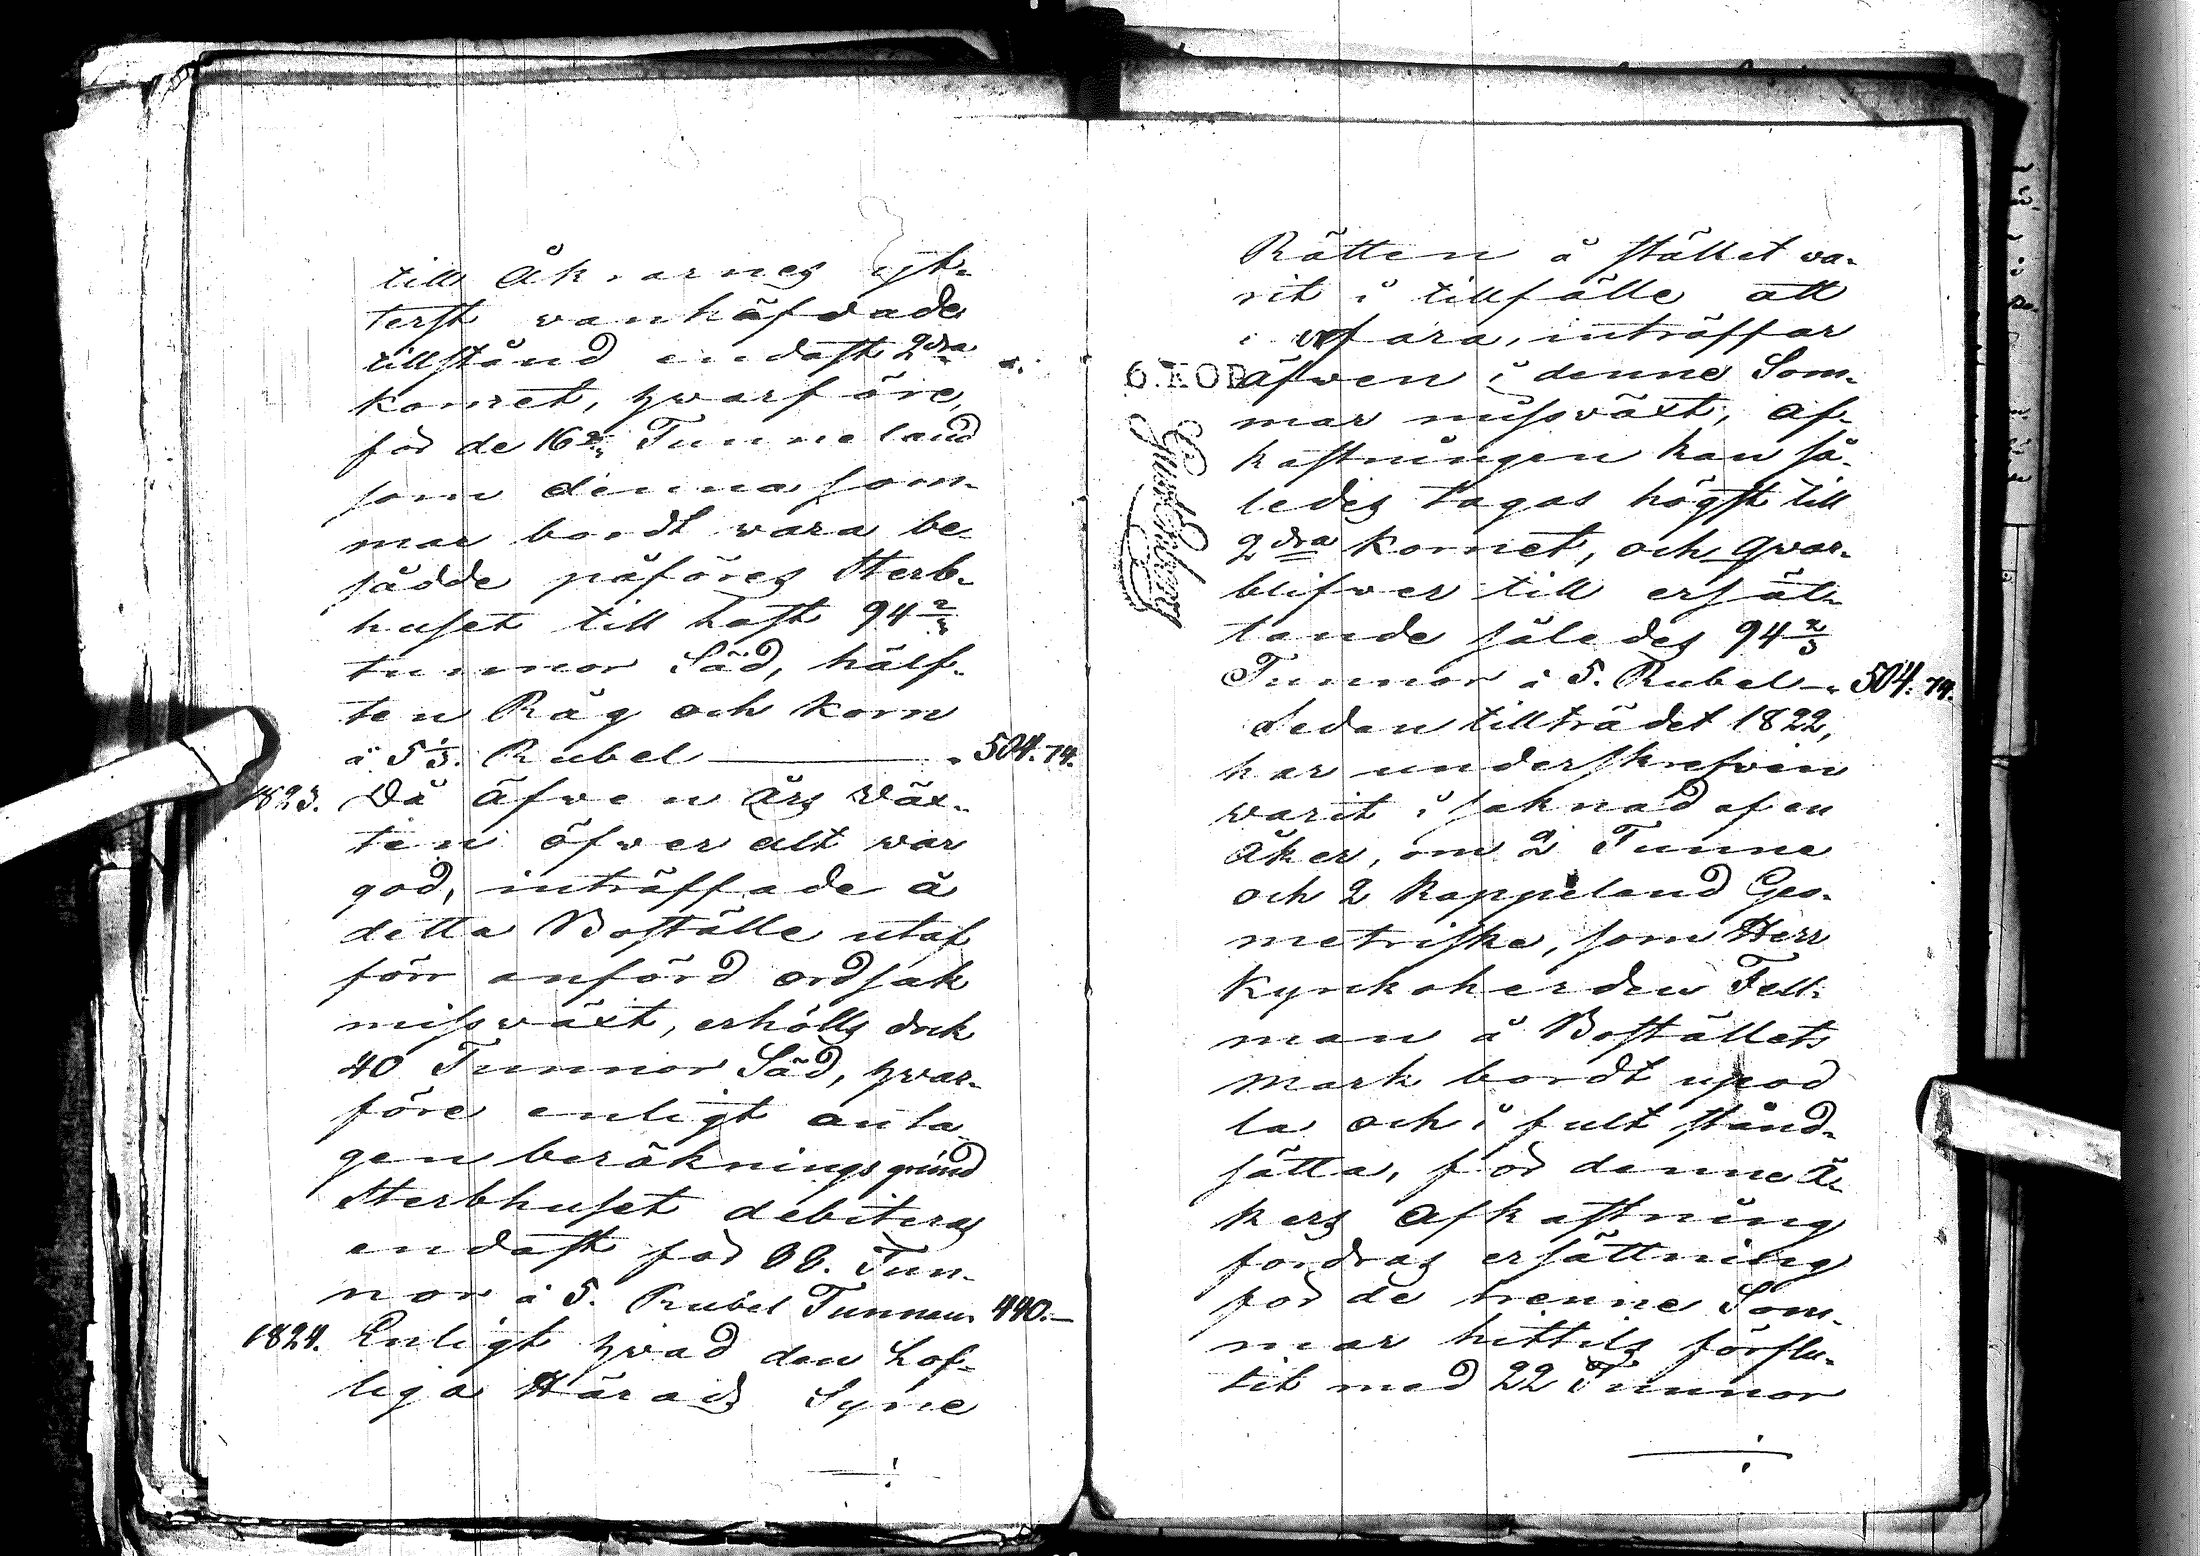 till Åkrarnes yt-
terst wanhäfdade
tillstånd endast 2dra
kornet, hwarföre,
för de 16 Tunneland
som denna som-
mar bordt wara be-
sådde påföres Sterb-
huset till last 94 2/3
tunnor Säd, hälf-
ten Råg och Korn
à 5 1/3. Rubel — 504. 74.
1823. Då äfwen års wäx-
ten öfwer alt war
god, inträffade å
detta Boställe utaf
förr anförd ordsak
misswäxt, erhölls dock
40 Tunnor Säd, hwar-
före enligt anta
gen beräknings grund
Sterbhuset debiteras
endast för 88. Tun-
nor à 5. Rubel Tunnan 440.—
1824. Enligt hwad den Lof-
liga Härads Syne
Rätten å stället wa-
rit i tillfälle att
erfara, inträffar
6. KOP
äfwen i denne Som-
mar misswäxt, af-
kastningen kan så-
ledes tagas högst till
2dra Kornet, och qwar-
blifwer till ersät-
tande således 94 2/3
Tunnor à 5. Rubel — 504. 74.
Sedan tillträdet 1822,
har underskrefwen
warit i saknad af en
Åker, om 2 Tunne
och 2 Kappeland Geo-
metriske, som Herr
Kyrkoherden Fell-
man å Boställets
mark bordt upod
la och i fult stånd-
sätta, för denne Å-
kers Afkastning
fordras ersättning
för de trenne Som-
mar hittils förflu-
tit med 22 Tunnor